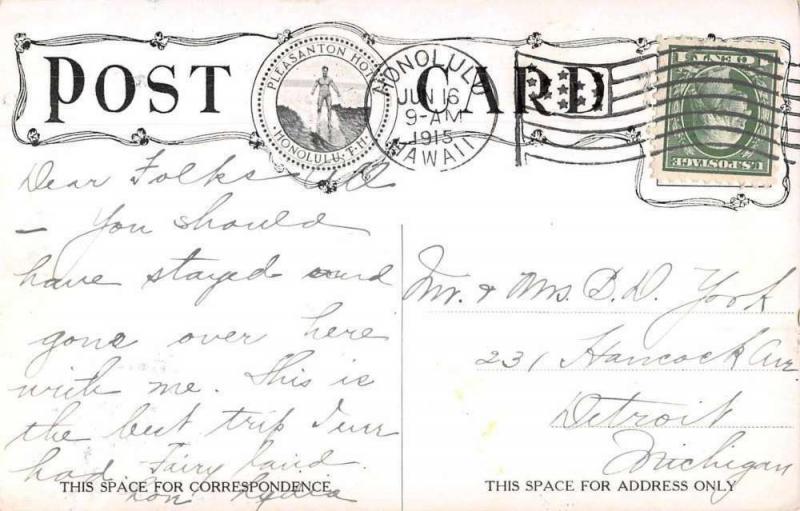 POST CARD
PLEASANTON HOTEL
HONOLULU, T.H.
HONOLULU
JUN 16
9-AM
1915
HAWAII
U.S. POSTAGE
Dear Folks
- You should
have stayed and
gone over here
with me. This is
the best trip I ever
had. Fairy land.
Mr. & Mrs. D. D. York
231 Hancock Ave
Detroit
Michigan
THIS SPACE FOR CORRESPONDENCE
THIS SPACE FOR ADDRESS ONLY